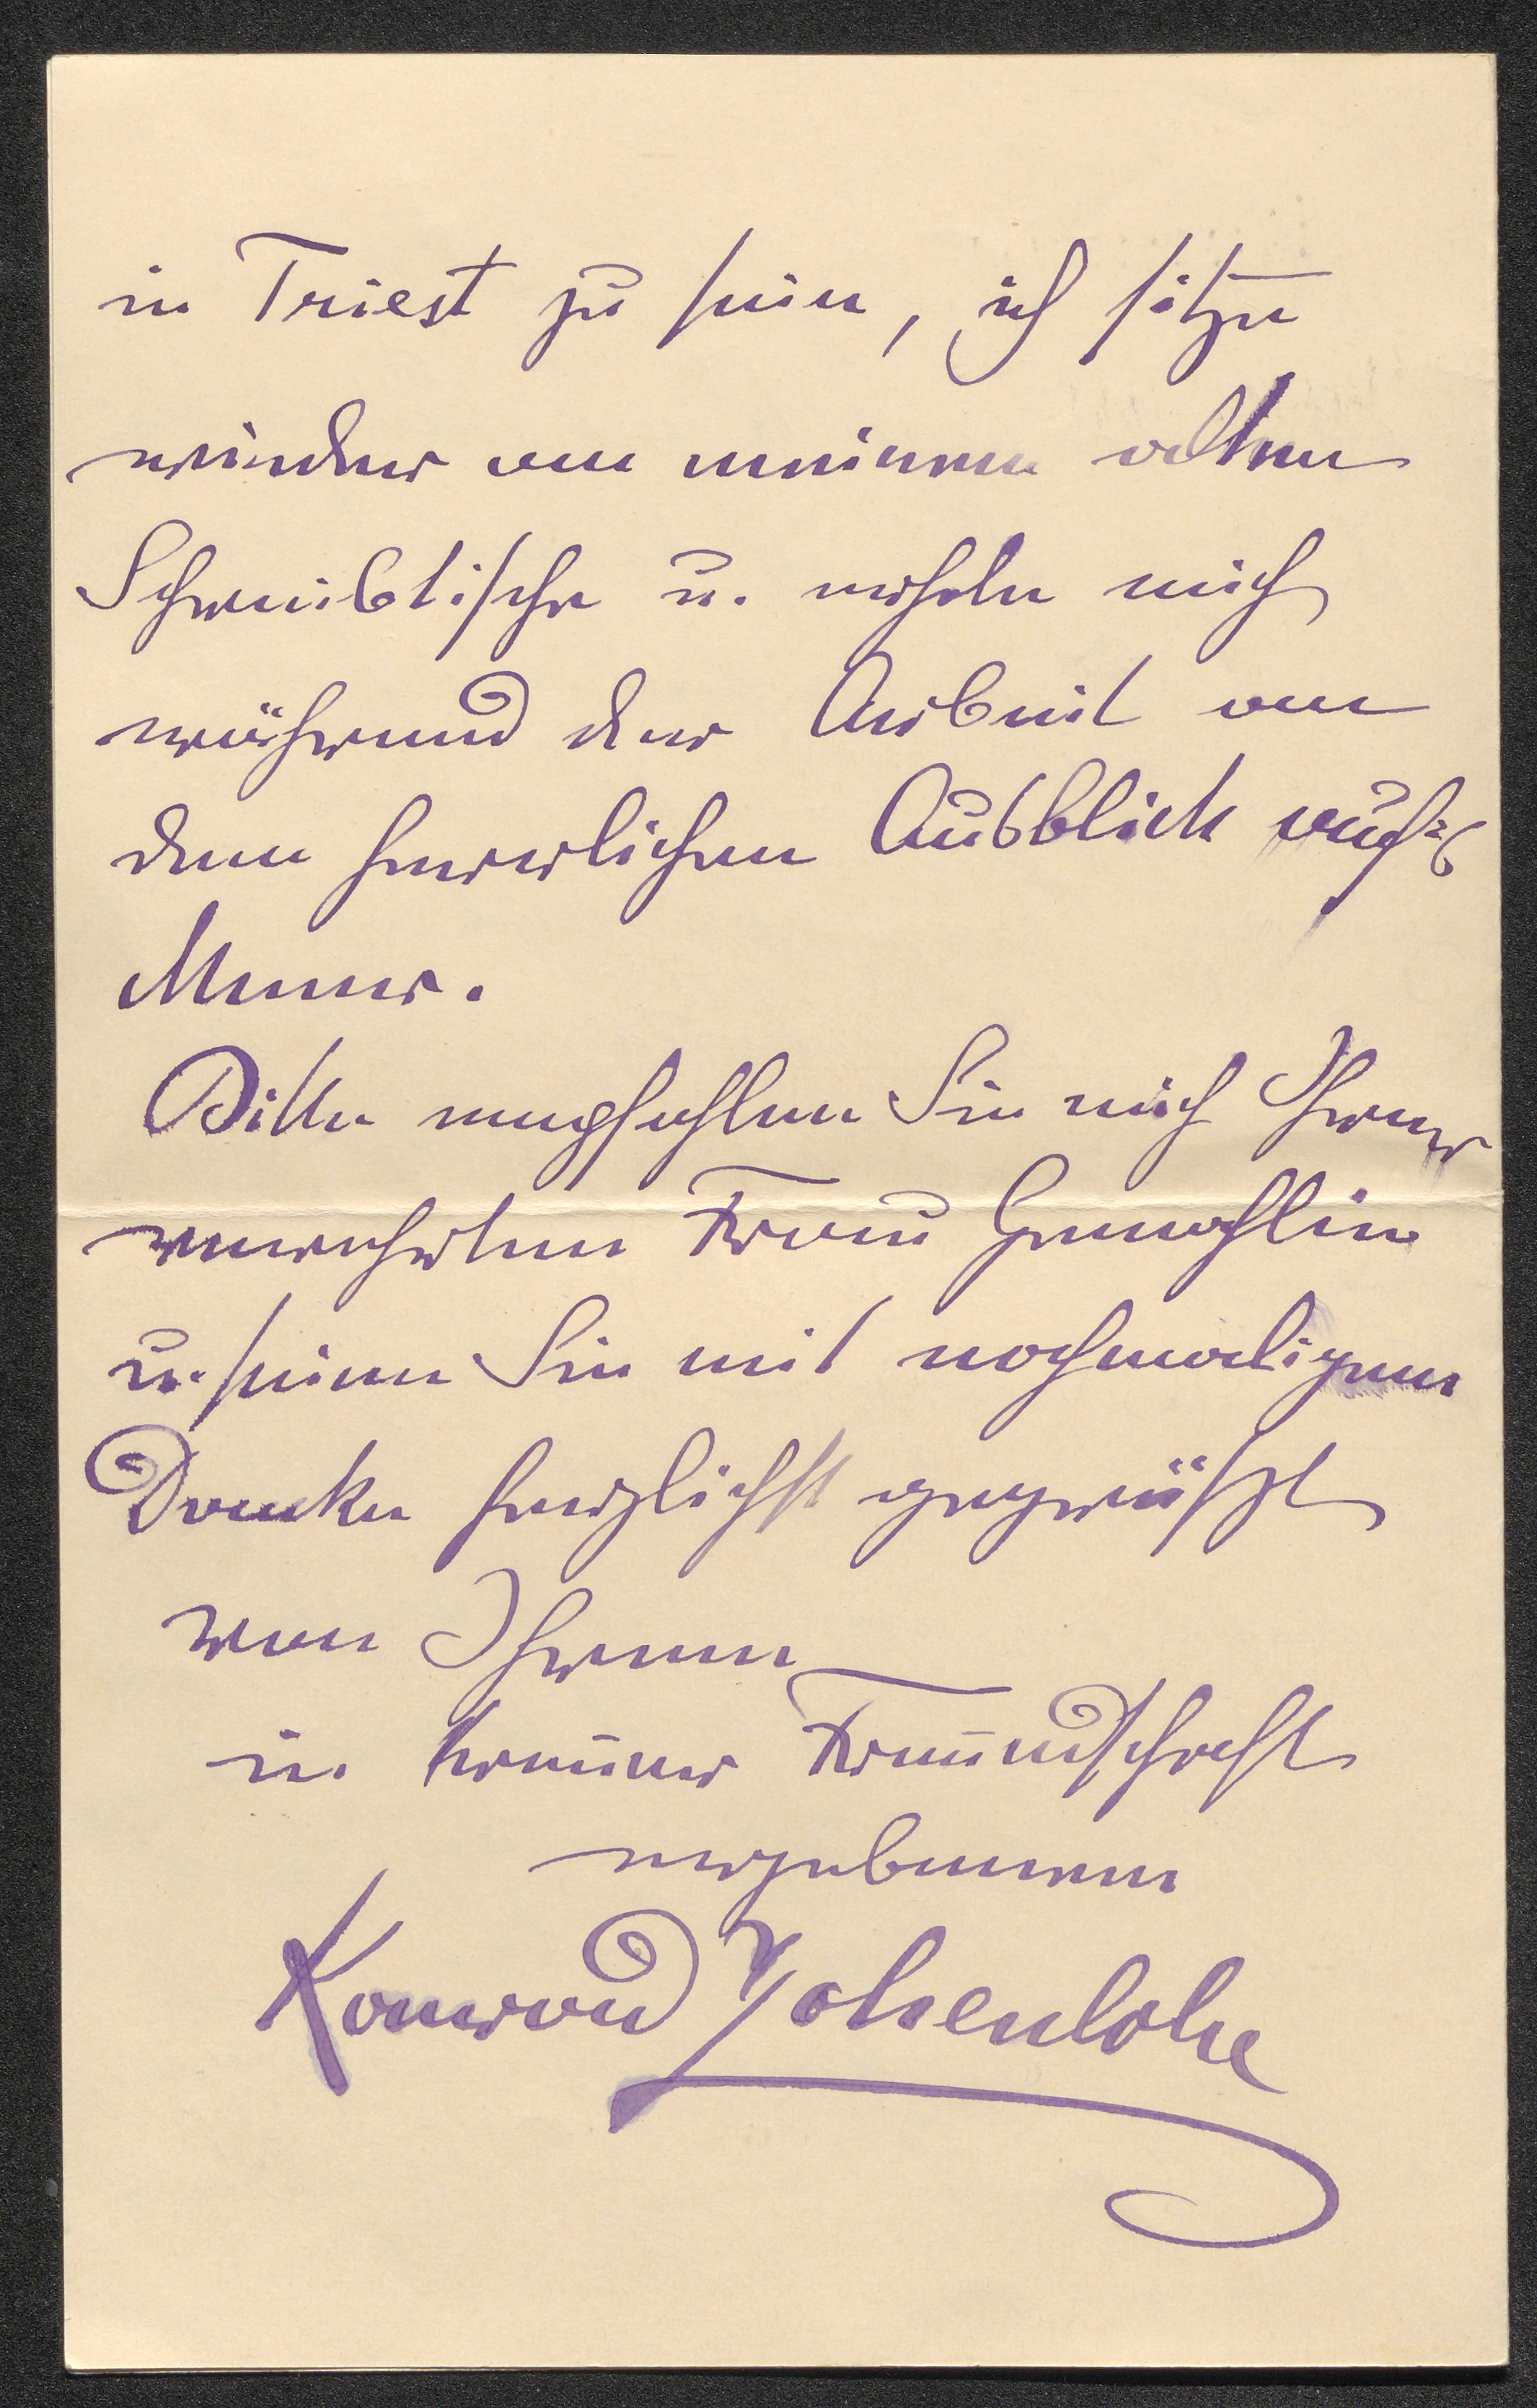 in Triest zu sein, ich sitze
wieder an meinem alten
Schreibtische u. erhole mich
während der Arbeit an
dem herrlichen Ausblick auf's
Meer.
Bitte empfehlen Sie mich Ihrer
verehrten Frau Gemahlin
u. seien Sie mit nochmaligem
Danke herzlichst gegrüßt
von Ihrem
in treuer Freundschaft
ergebenen
Konrad Hohenlohe